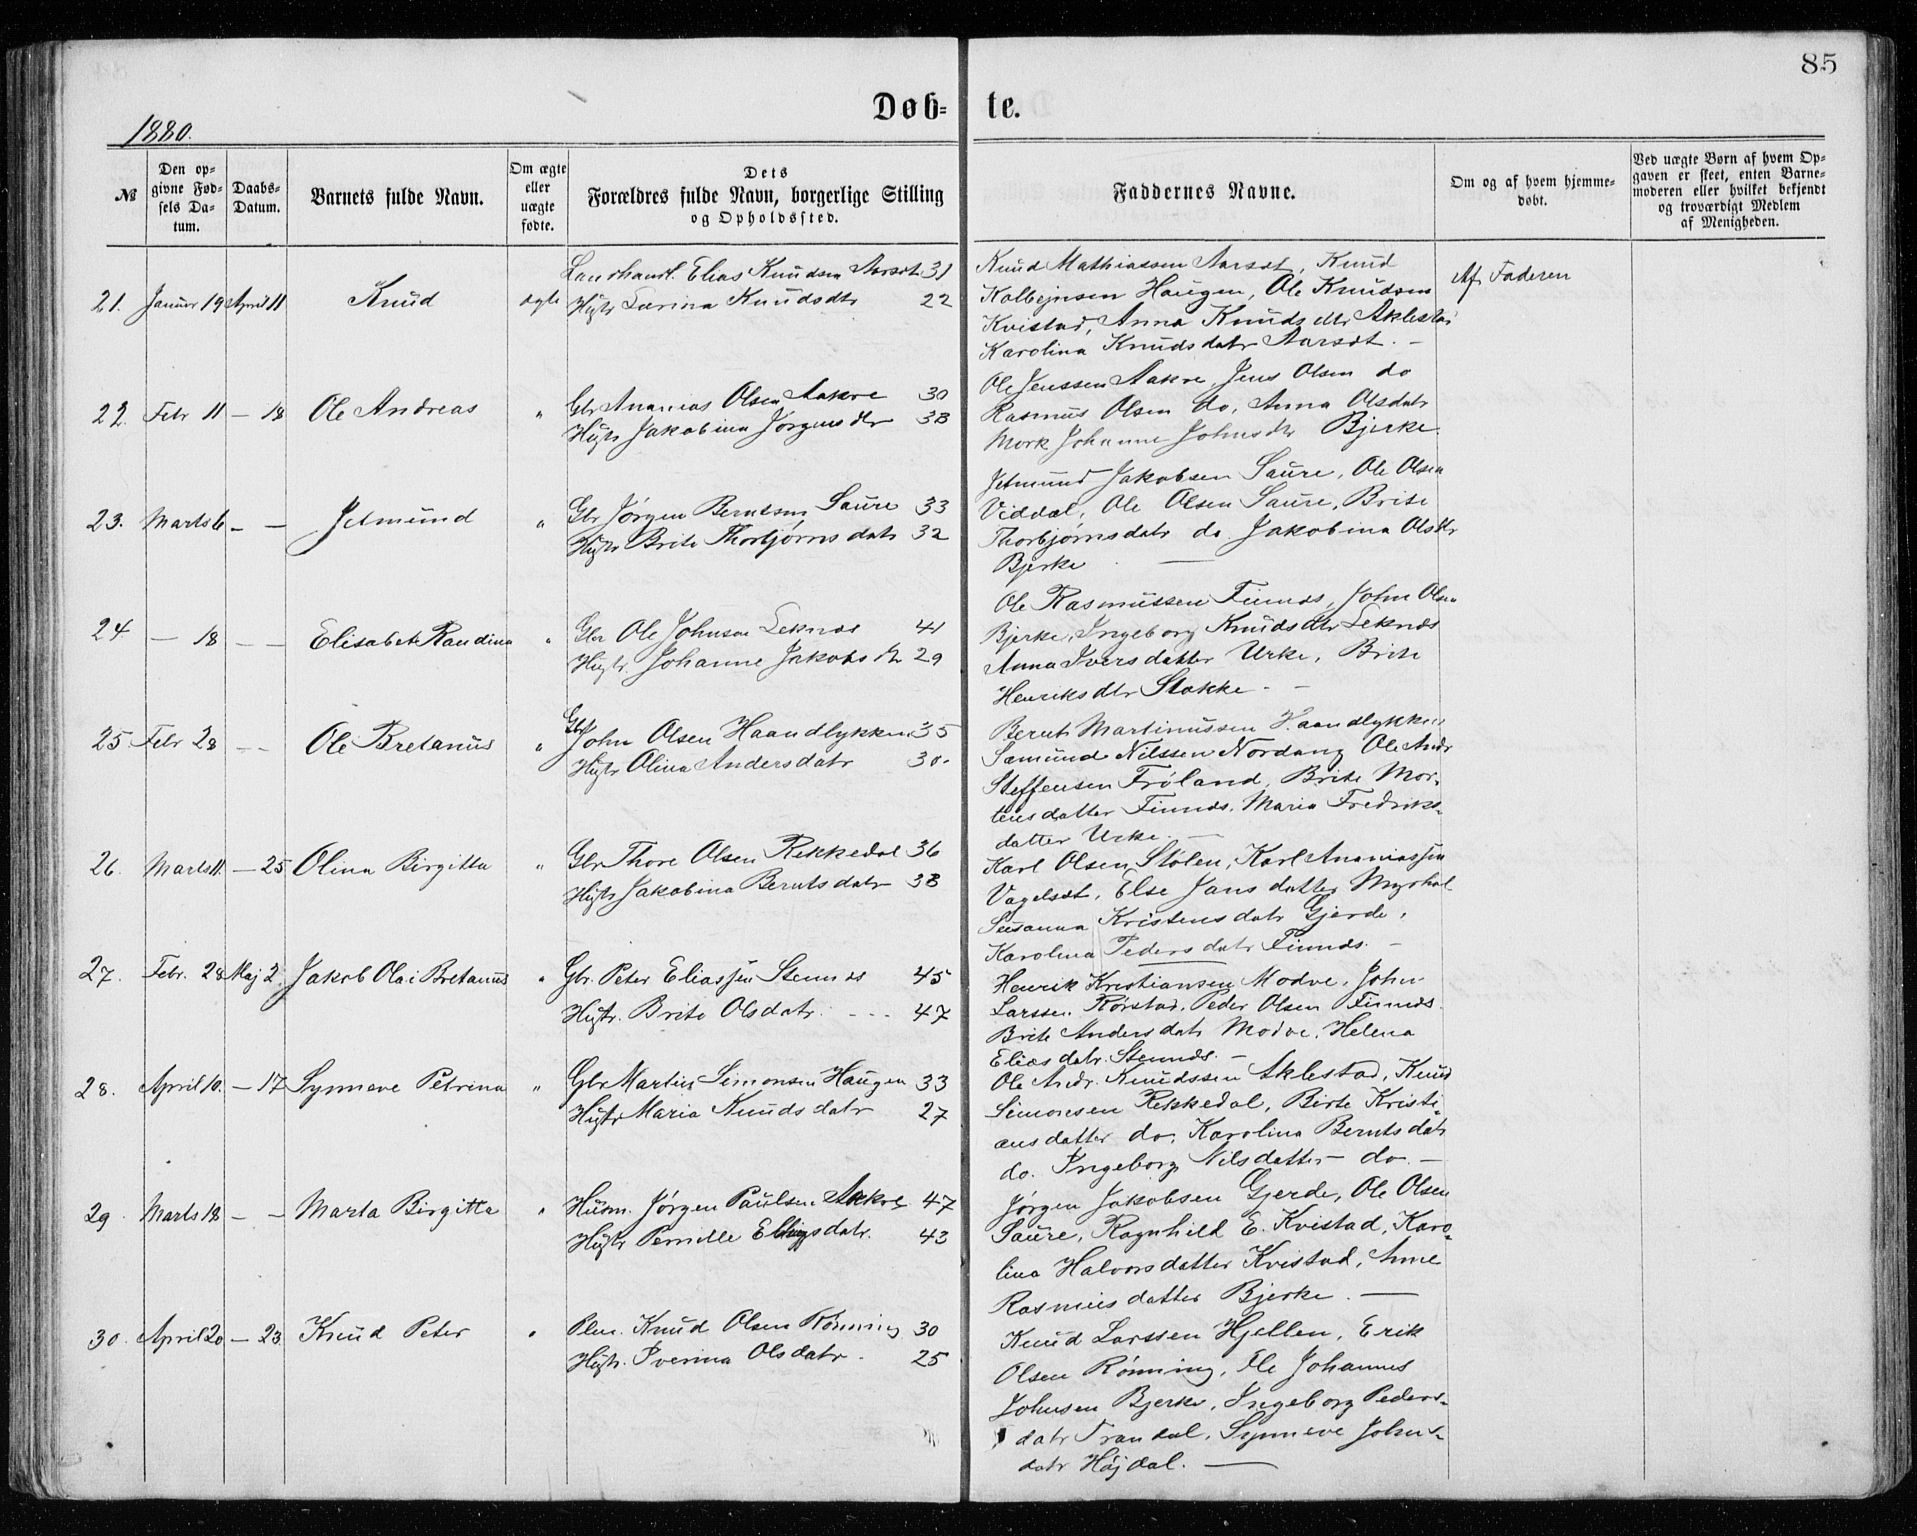 85
Døb- te.
1880.
№
Den op-
givne Fød-
sels Da-
tum.
Daabs-
Datum.
Barnets fulde Navn.
Om ægte
eller
uægte
fødte.
Dets
Forældres fulde Navn, borgerlige Stilling
og Opholdssted.
Faddernes Navne.
Om og af hvem hjemme-
døbt.
Ved uægte Børn af hvem Op-
gaven er skeet, enten Barne-
moderen eller hvilket bekjendt
og troværdigt Medlem
af Menigheden.
21. Januar 19 April 11 Knud ægte
Landhandl. Elias Knudsen Aarsæt 31
Hustr Knudsdtr 22
Knud Mathiassen Aarsæt, Knud
Kolbejnsen Haugen, Ole Knudsen
Kvistad, Anna Knudsdtr Aklestad
Karolina Knudsdatr Aarsæt. -
Af Faderen
22. Febr 11 - 18 Ole Andreas "
Gbr Ananias Olsen Aakre 30
Hustr Jakobina Jørgensdtr 38
Ole Jenssen Aakre, Jens Olsen do
Rasmus Olsen do, Anna Olsdatr
Mork Johanne Johnsdtr Bjerke.
23. Marts 6 - - Jetmund "
Gbr Jørgen Berntsen Saure 33
Hustr Brite Thorbjørnsdatr 32
Jetmund Jakobsen Saure, Ole Olsen
Viddal, Ole Olsen Saure, Brite
Thorbjørnsdatr do. Jakobina Olsdtr
Bjerke
24 - 18 - - Elisabet Randina "
Gbr Ole Johnsen Leknæs 41
Hustr. Johanne Jakobsdtr 29
Ole Rasmussen Finnæs, John Olsen
Bjerke, Ingeborg Knudsdtr Leknæs
Anna Iversdatter Urke, Brite
Henriksdtr Stokke. -
25 Febr 28 - - Ole Bretanus "
Gbr
John Olsen Haandlykken 35
Hustr Olina Andersdatr 30.
Bernt Martinussen Haandlykken
Sæmund Nilssen Nordang Ole Andr
Steffensen Frøland, Brite Mor-
tensdatter Finnæs, Maria Fredriks-
datter Urke. -
26. Marts 11. - 25 Olina Birgitta "
Gbr Thore Olsen Rekkedal 36
Hustr Jakobina Berntsdatr 38
Karl Olsen Stølen, Karl Ananiassen
Vagelsæt, Else Jansdatter Myrhol
Susanna Kristensdatr Gjerde,
Karolina Pedersdatr Finnæs. -
27. Febr. 28 Maj 2. Jakob Olai Bretanus "
Gbr. Peter Eliassen Stennæs 45
Hustr. Brite Olsdatr. - - - 47
Henrik Kristiansen Modve, John
Larssen Rørstad, Peder Olsen Finnæs.
Brite Andersdatr Modve, Helena
Eliasdatr. Stennæs. -
28. April 10. - 17 Synneve Petrina "
Gbr Martin Simonsen Haugen 33
Hustr Maria Knudsdatr 27
Ole Andr. Knudssen Aklestad, Knud
Simonsen Rekkedal, Birte Kristi-
ansdatter do, Karolina Berntsdatr
do. Ingeborg Nilsdatter do. -
29 Marts 18 - - Marta Birgitta "
Husm. Jørgen Paulsen Aakre 47
Hustr Pernille Ellingsdatr. 43
Jørgen Jakobsen Gjerde, Ole Olsen
Saure, Ragnhild E. Kvistad, Karo-
lina Halvorsdatter Kvistad, Anne
Rasmusdatter Bjerke. -
30. April 20 - 23 Knud Peter "
Knud Olsen Rønning 30
Hustr. Iverina Olsdatr. 25
Knud Larssen Hjellen, Erik
Olsen Rønning, Ole Johannes
Johnsen Bjerke, Ingeborg Peders-
datr Trandal, Synneve Johns-
datr Højdal. -